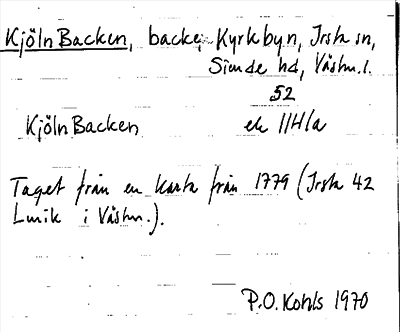 Kjöln Backen, backe Kyrkbyn, Irsta sn,
Siende hd, Västm. l.
52
Kjöln Backen ek 11H/a
Taget från en karta från 1779 (Irsta 42
Lmk i Västm.).
P.O. Kohls 1970